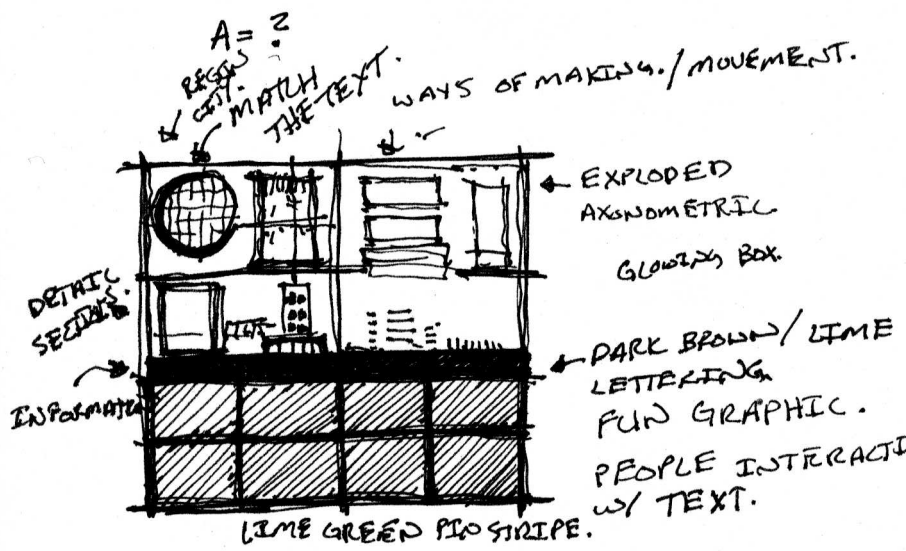 A = ?
REGION
CITY.
MATCH
THE TEXT.
WAYS OF MAKING./MOVEMENT.
EXPLODED
AXONOMETRIC
GLOWING BOX.
DETAIL
SECTIONS.
INFORMATI
DARK BROWN/LIME
LETTERING
FUN GRAPHIC.
PEOPLE INTERACTI
W/ TEXT.
LIME GREEN PINSTRIPE.